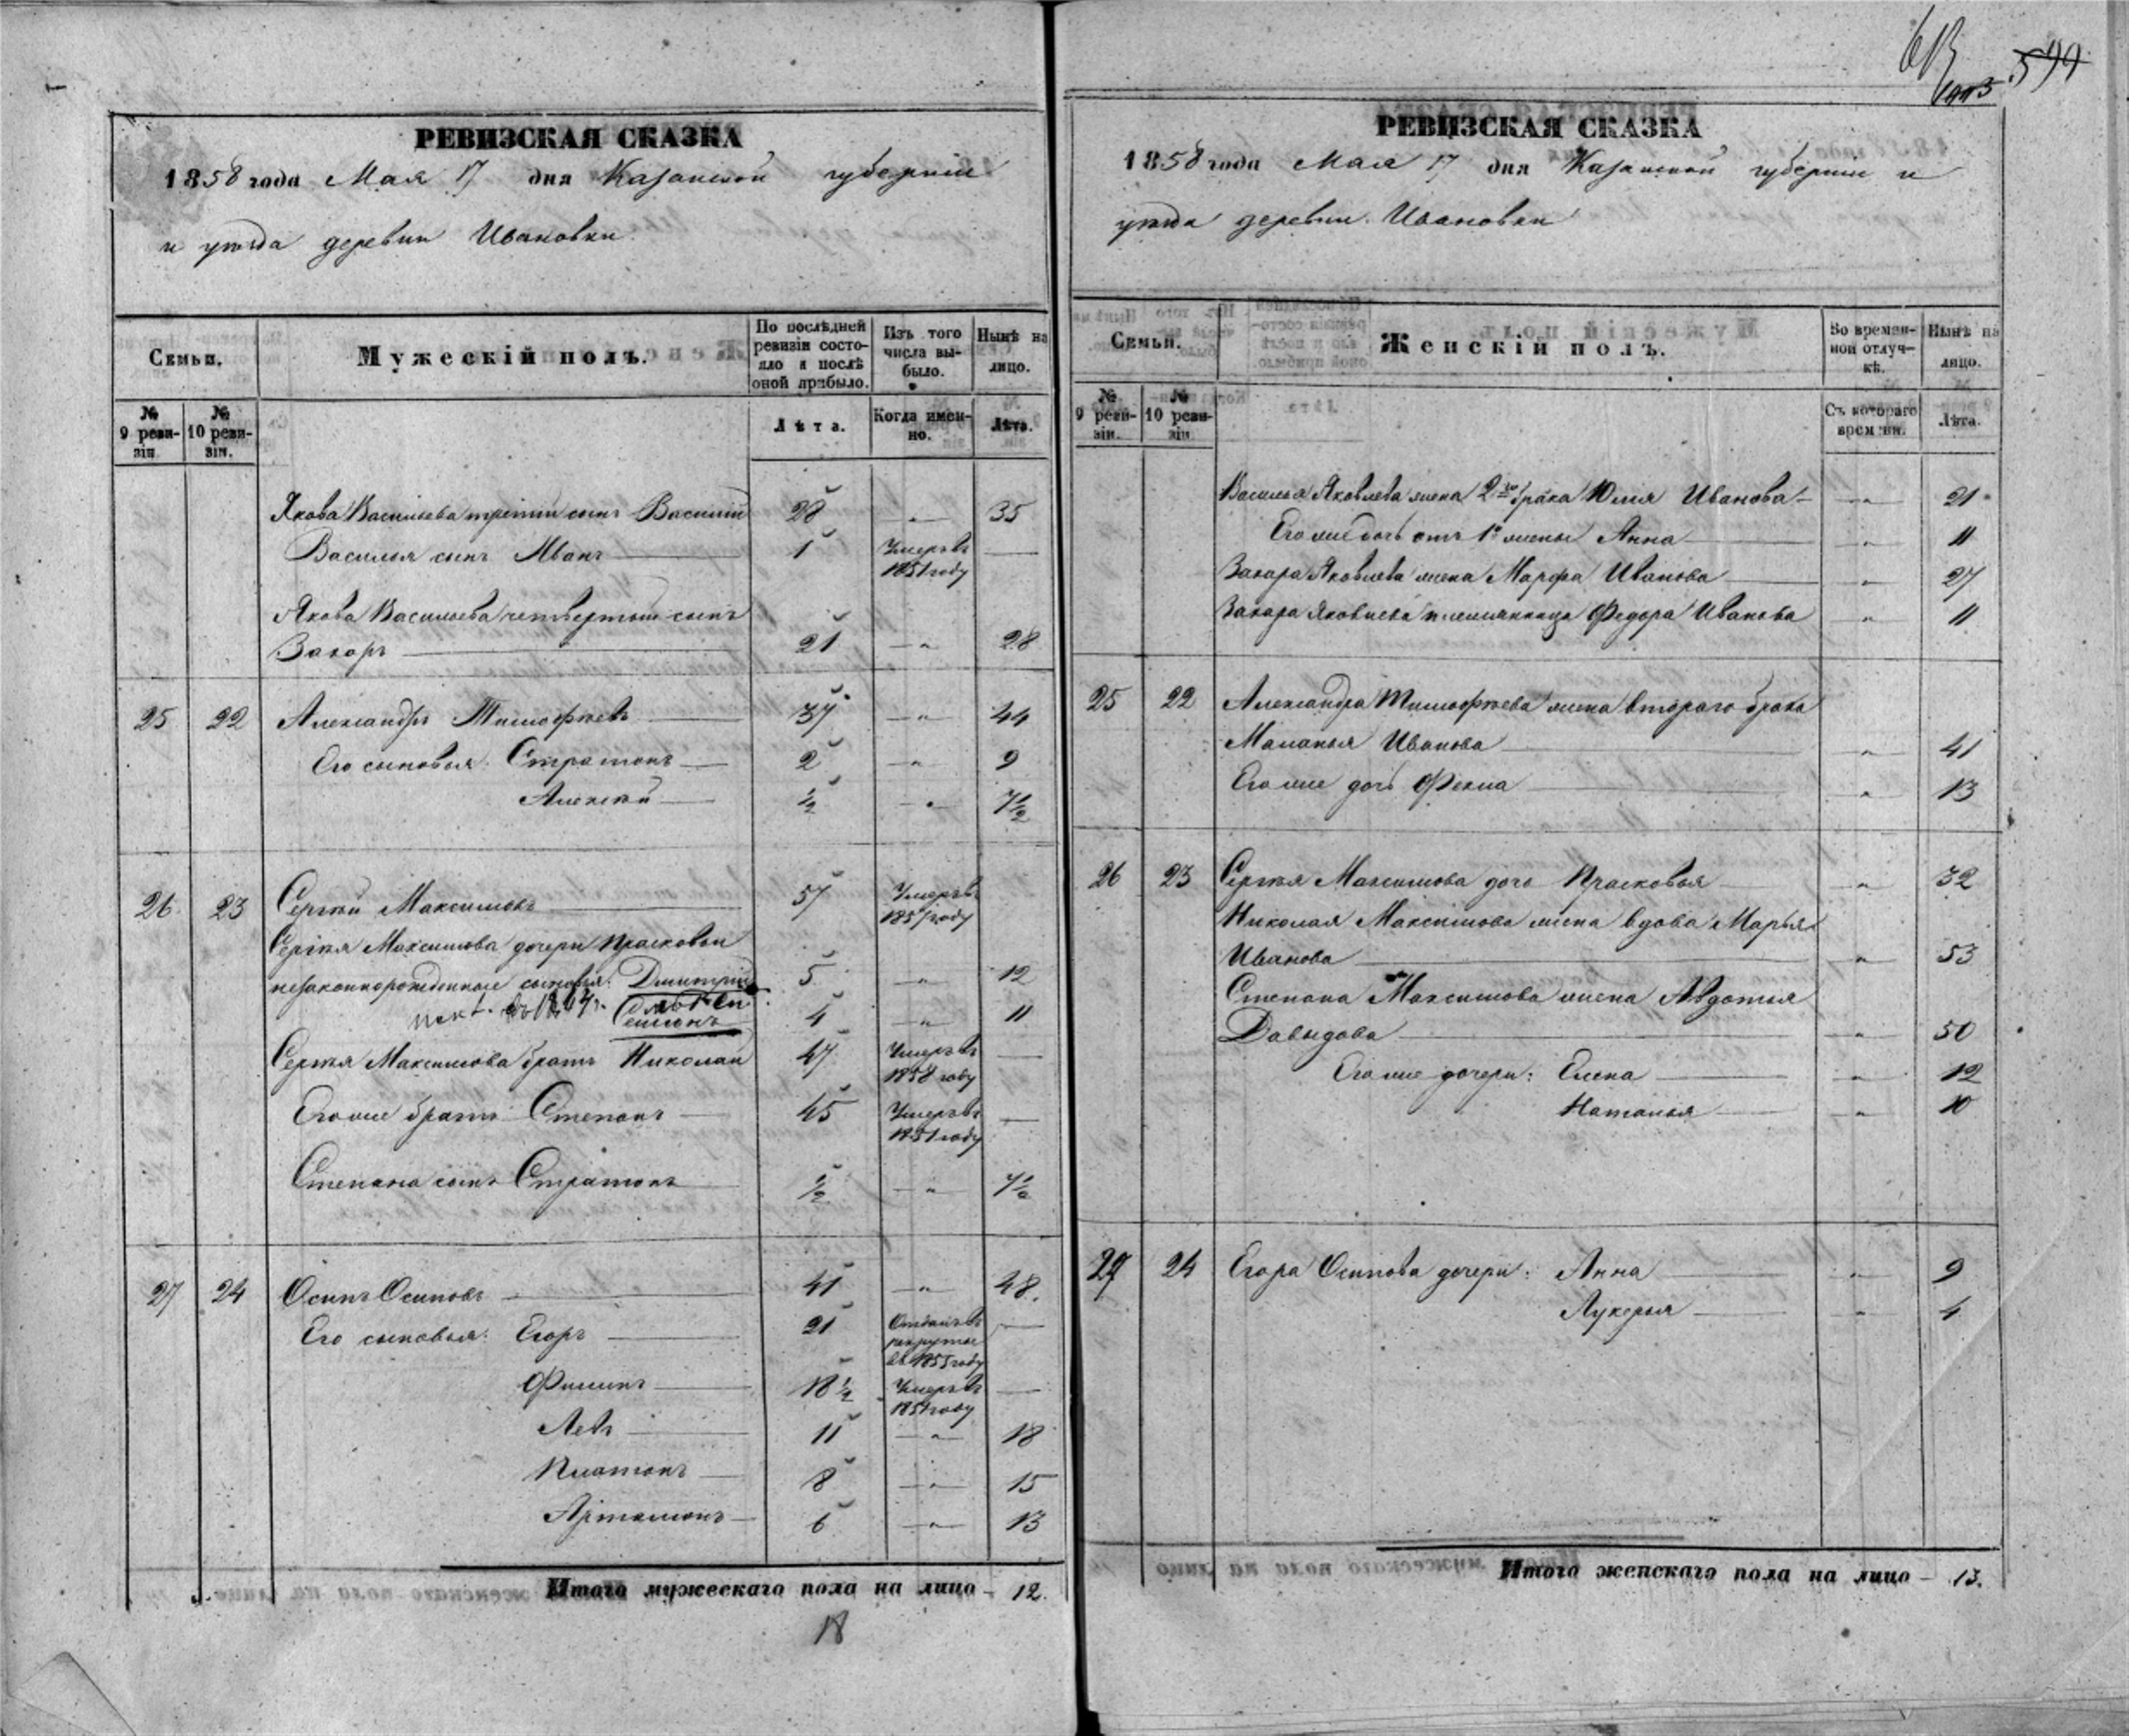 599
РЕВИЗСКАЯ СКАЗКА
1858 года Мая 17 дня Казанской губернiи
и уѣзда деревни Ивановки
Семьи.
Мужескiй полъ.
По послѣдней ревизiи состояло и послѣ оной прибыло.
Изъ того числа выбыло.
Нынѣ на лицо.
№ 9 ревизiи
№ 10 ревизiи.
Лѣта.
Когда именно.
Лѣта.
Якова Васильева третiй сынъ Василiй 28 " 35
Василья сынъ Иванъ 1 Умеръ въ 1851 году —
Якова Васильева четвертый сынъ
Захаръ 21 " 28
25 22 Александръ Тимофѣевъ 37 " 44
Его сыновья: Стратонъ 2 " 9
Алексѣй ½ " 7½
26 23 Сергѣй Максимовъ 57 Умеръ въ 1857 году
Сергѣя Максимова дочери Прасковьи
незаконнорожденные сыновья: Дмитрiй 5 " 12
Семионъ 4 " 11
Сергѣя Максимова братъ Николай 47 Умеръ въ 1858 году —
Его же братъ Степанъ 45 Умеръ въ 1851 году —
Степана сынъ Стратонъ ½ " 7½
27 24 Осипъ Осиповъ 41 " 48.
Его сыновья: Егоръ 21 Отданъ въ рекруты въ 1855 году —
Филипъ 18½ Умеръ въ 1851 году —
Левъ 11 " 18
Платонъ 8 " 15
Артамонъ 6 " 13
Итого мужескаго пола на лицо — 12.
18
РЕВИЗСКАЯ СКАЗКА
1858 года Мая 17 дня Казанской губернiи и
уѣзда деревни Ивановки
Семьи.
Женскiй полъ.
Во временной отлучкѣ.
Нынѣ на лицо.
№ 9 ревизiи.
№ 10 ревизiи
Съ котораго времени.
Лѣта.
Василья Яковлева жена 2го брака Юлия Иванова — " 21
Его же дочь отъ 1й жены Анна " 11
Захара Яковлева жена Марфа Иванова " 27
Захара Яковлева племянница Федора Иванова " 11
25 22 Александра Тимофѣева жена втораго брака
Маланья Иванова " 41
Его же дочь Фекла " 13
26 23 Сергѣя Максимова дочь Прасковья " 32
Николая Максимова жена вдова Марья
Иванова " 53
Степана Максимова жена Авдотья
Давыдова " 50
Его же дочери: Елена " 12
Наталья " 10
27 24 Егора Осипова дочери: Анна " 9
Лукерья " 4
Итого женскаго пола на лицо — 13.